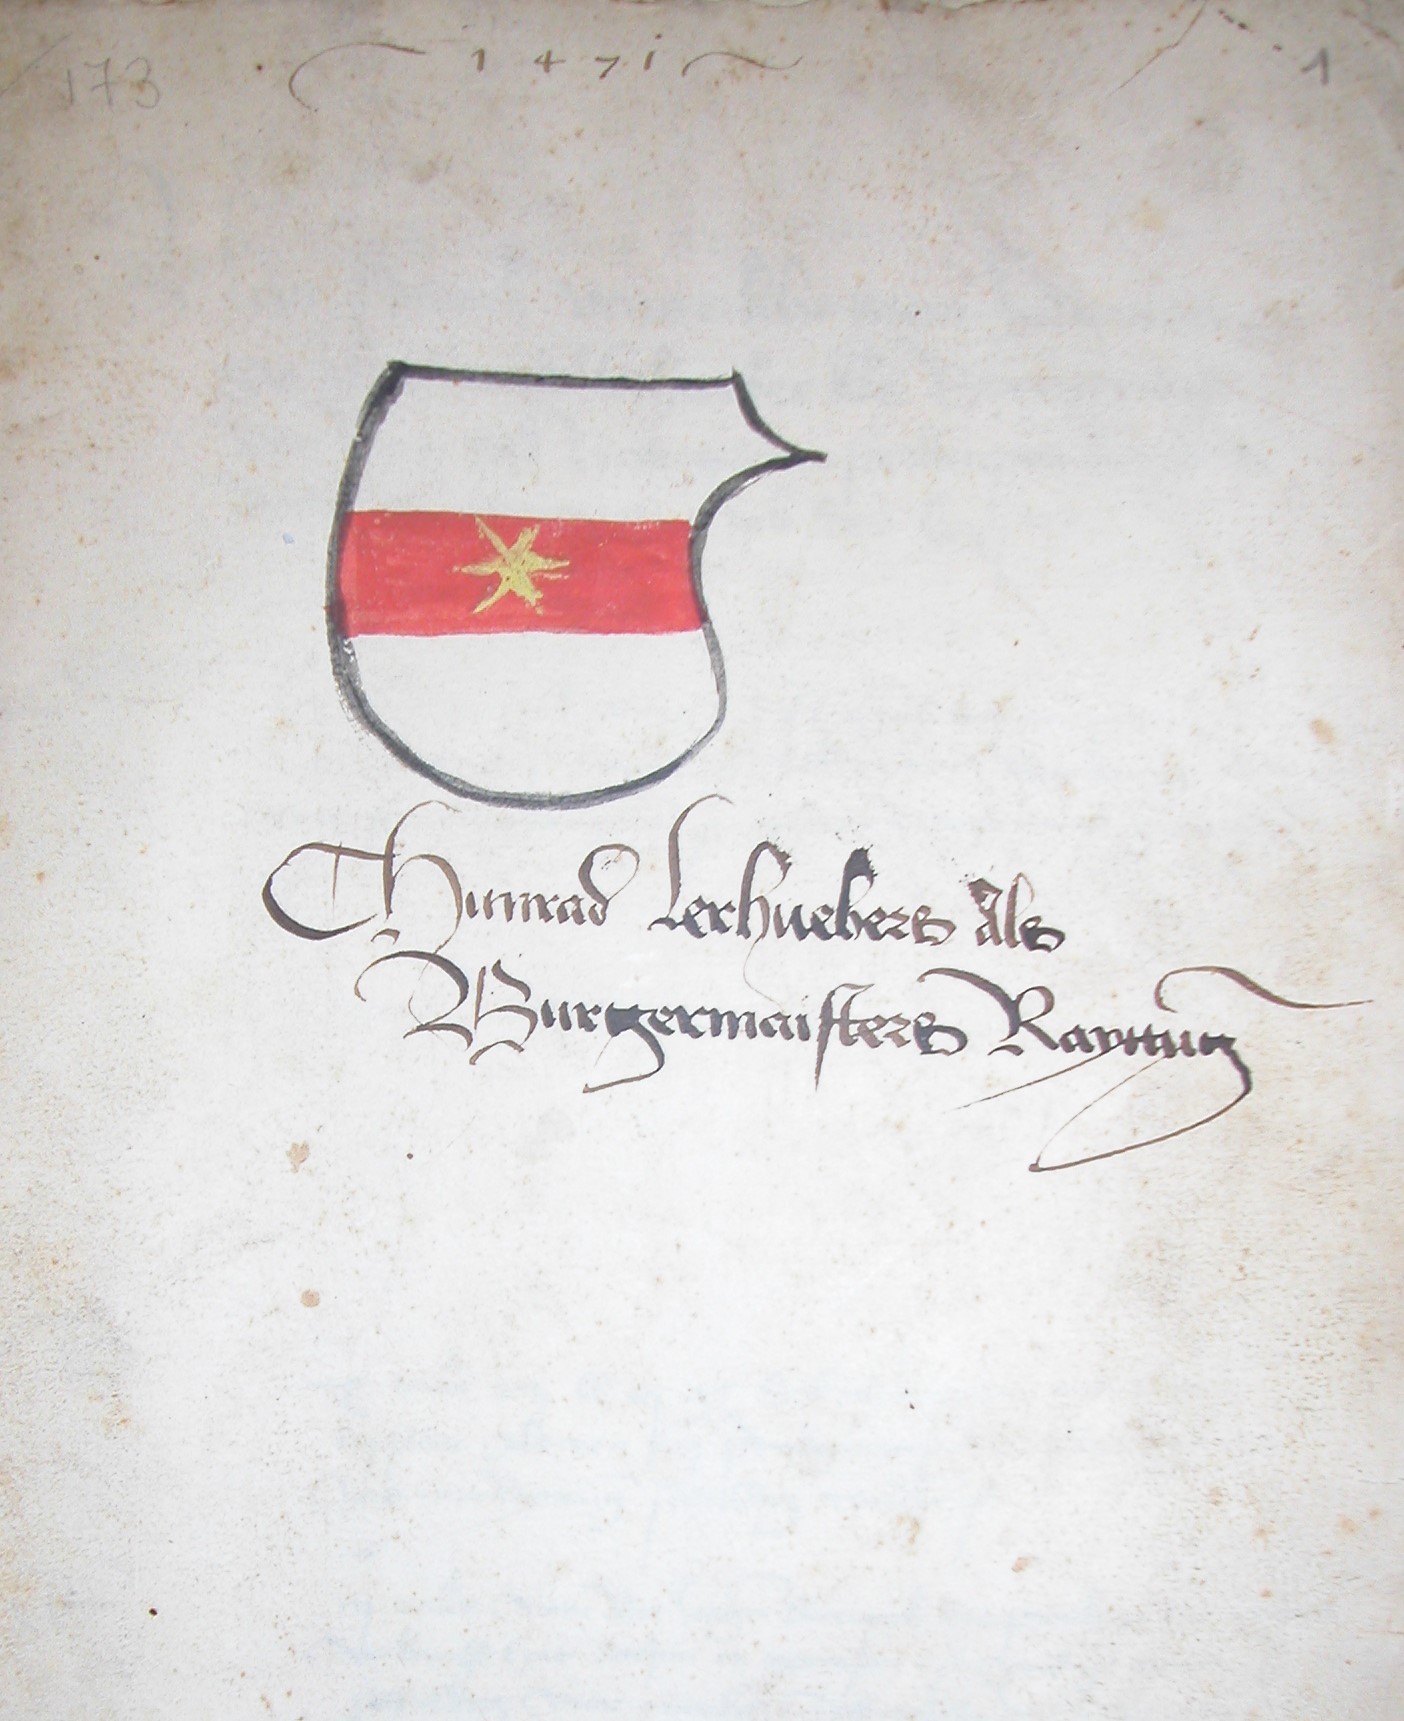 173 1471 1
Chunrad Lerhuebers Als
Burgermaisters Rayttung